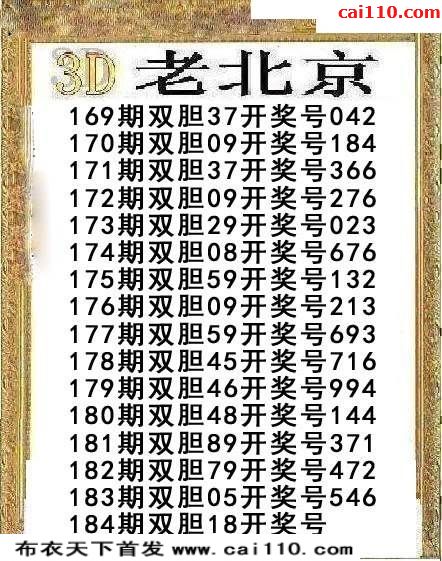 cai110.com
3D 老北京
169期双胆37开奖号042
170期双胆09开奖号184
171期双胆37开奖号366
172期双胆09开奖号276
173期双胆29开奖号023
174期双胆08开奖号676
175期双胆59开奖号132
176期双胆09开奖号213
177期双胆59开奖号693
178期双胆45开奖号716
179期双胆46开奖号994
180期双胆48开奖号144
181期双胆89开奖号371
182期双胆79开奖号472
183期双胆05开奖号546
184期双胆18开奖号
布衣天下首发 www.cai110.com